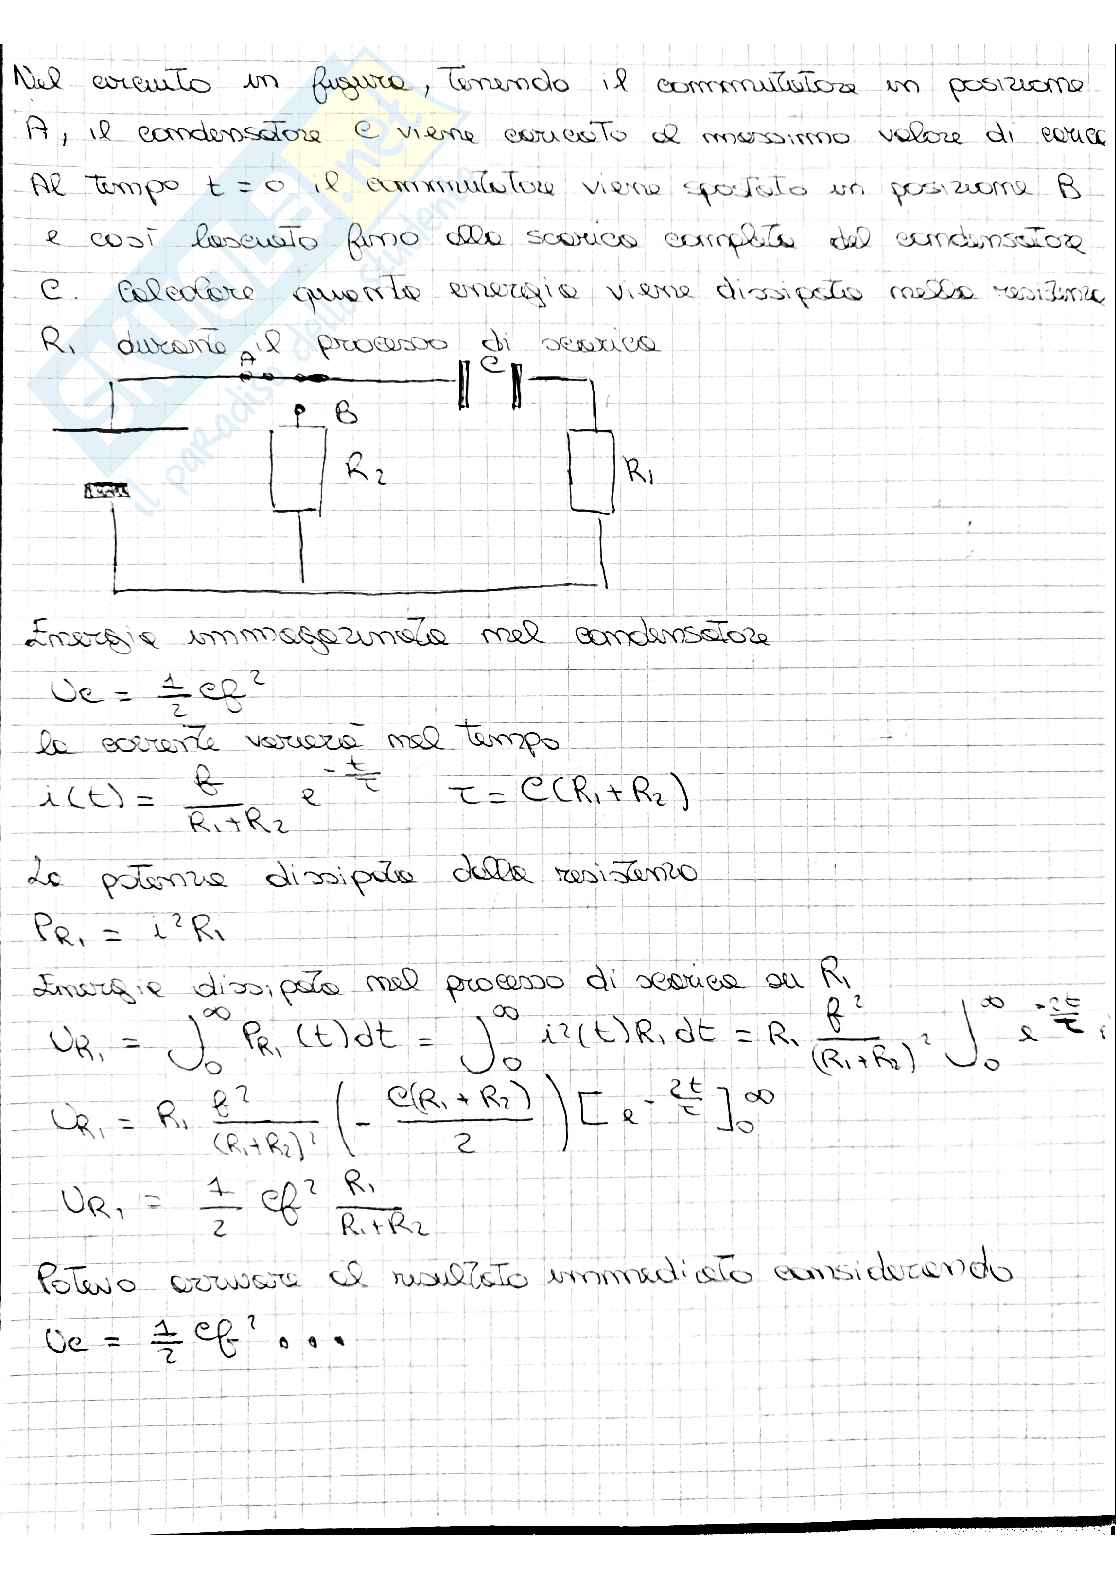 Nel circuito in figura, tenendo il commutatore in posizione
A, il condensatore C viene caricato al massimo valore di carica
Al tempo t = 0 il commutatore viene spostato in posizione B
e così lasciato fino alla scarica completa del condensatore
C. Calcolare quanta energia viene dissipata nella resistenza
R₁ durante il processo di scarica
A
C
B
R₂
R₁
Energia immagazinata nel condensatore
Uc = 1/2 Cf²
la corrente varierà nel tempo
i(t) = f/(R₁+R₂) e^(-t/τ) τ = C(R₁+R₂)
La potenza dissipata dalla resistenza
P_R₁ = i²R₁
Energia dissipata nel processo di scarica su R₁
U_R₁ = ∫₀^∞ P_R₁(t)dt = ∫₀^∞ i²(t)R₁dt = R₁ f²/(R₁+R₂)² ∫₀^∞ e^(-2t/τ)
U_R₁ = R₁ f²/(R₁+R₂)² (- C(R₁+R₂)/2) [e^(-2t/τ)]₀^∞
U_R₁ = 1/2 Cf² R₁/(R₁+R₂)
Potevo arrivare al risultato immediato considerando
Uc = 1/2 Cf² ...
SKUOLA.net
il paradiso dello studente